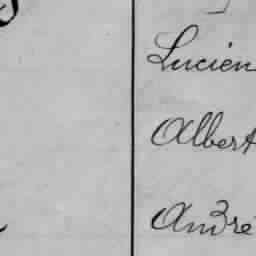 Lucien
Albert
André